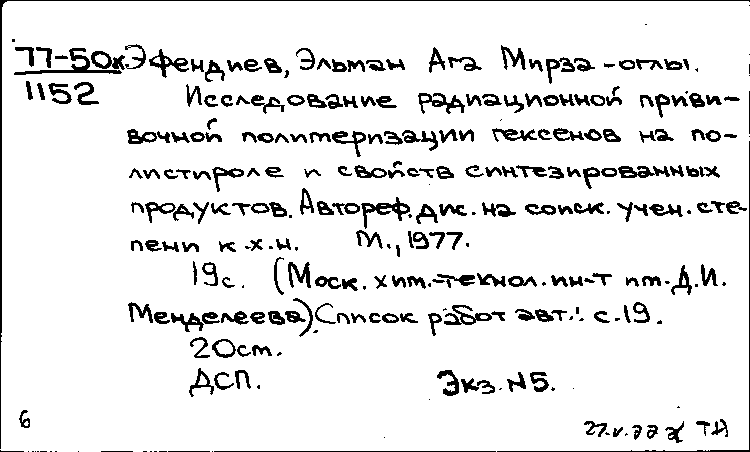 77-50к Эфендиев, Эльман Ага Мирза-оглы.
1152 Исследование радиационной приви-
вочной полимеризации гексенов на по-
листироле и свойств синтезированных
продуктов. Автореф. дис. на соиск. учен. сте-
пени к.х.н. М., 1977.
19с. (Моск. хим.-технол. ин-т им. Д.И.
Менделеева). Список работ авт.: с.19.
20см.
ДСП. Экз. №5.
6